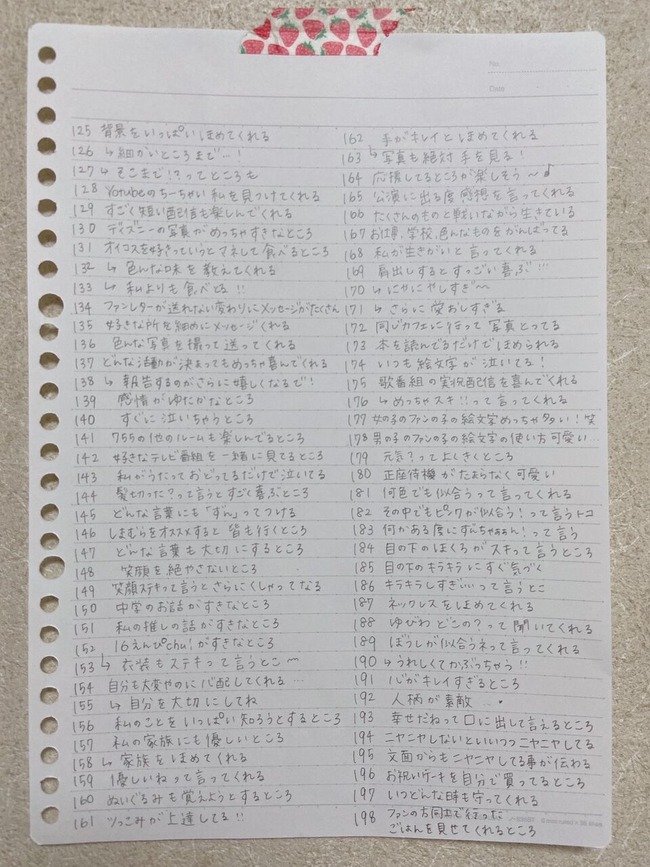 No.
Date
125 背景をいっぱいほめてくれる
126 ↳ 細かいところまで…!
127 ↳ そこまで!?ってところも
128 YouTubeのちーちゃい私を見つけてくれる
129 すごく短い配信も楽しんでくれる
130 ディズニーの写真がめっちゃすきなところ
131 オイコスを好きっていうとマネして食べるところ
132 ↳ 色んな味を教えてくれる
133 ↳ 私よりも食べとる!!
134 ファンレターが送れない変わりにメッセージがたくさん
135 好きな所を細めにメッセージくれる
136 色んな写真を撮って送ってくれる
137 どんな活動が決まってもめっちゃ喜んでくれる
138 ↳ 報告するのがさらに嬉しくなるで!
139 感情がゆたかなところ
140 すぐに泣いちゃうところ
141 755の他のルームも楽しんでるところ
142 好きなテレビ番組を一緒に見てるところ
143 私がうたっておどってるだけで泣いてる
144 髪切った?って言うとすごく喜ぶところ
145 どんな言葉にも「ずん」ってつける
146 しまむらをオススメすると皆も行くところ
147 どんな言葉も大切にするところ
148 笑顔を絶やさないところ
149 笑顔ステキって言うとさらにくしゃってなる
150 中学のお話がすきなところ
151 私の推しの話がすきなところ
152 16えんぴchu!がすきなところ
153 ↳ 衣装もステキって言うとこ〜
154 自分も大変やのに心配してくれる…
155 ↳ 自分を大切にしてね
156 私のことをいっぱい知ろうとするところ
157 私の家族にも優しいところ
158 ↳ 家族をほめてくれる
159 優しいねって言ってくれる
160 ぬいぐるみも覚えようとするところ
161 ツっこみが上達してる!!
162 手がキレイとほめてくれる
163 ↳ 写真も絶対手を見る!
164 応援してるところが楽しそう〜♪
165 公演に出る度感想を言ってくれる
166 たくさんのものと戦いながら生きている
167 お仕事、学校、色んなものをがんばってる
168 私が生きがいと言ってくれる
169 肩出しするとすっごい喜ぶ!!!
170 ↳ にやにやしすぎ〜
171 ↳ さらに愛おしすぎる
172 同じカフェに行って写真とってる
173 本を読んでるだけでほめられる
174 いつも絵文字が泣いてる!
175 歌番組の実況配信を喜んでくれる
176 ↳ めっちゃスキ!!って言ってくれる
177 女の子のファンの子の絵文字めっちゃ多い!笑
178 男の子のファンの子の絵文字の使い方可愛い…
179 元気?ってよくきくところ
180 正座待機がたまらなく可愛い
181 何色でも似合うって言ってくれる
182 その中でもピンクが似合う!って言うトコ
183 何かある度にずんちゃぁぁん!って言う
184 目の下のほくろがスキって言うところ
185 目の下のキラキラにすぐ気づく
186 キラキラしすぎぃぃって言うとこ
187 ネックレスをほめてくれる
188 ゆびわどこの?って聞いてくれる
189 ぼうしが似合うネって言ってくれる
190 ↳ うれしくてかぶっちゃう!!
191 心がキレイすぎるところ
192 人柄が素敵…
193 幸せだねって口に出して言えるところ
194 ニヤニヤしないといいつつニヤニヤしてる
195 文面からもニヤニヤしてる事が伝わる
196 お祝いケーキを自分で買ってるところ
197 いつどんな時も守ってくれる
198 ファンの方同士で行った
ごはんを見せてくれるところ